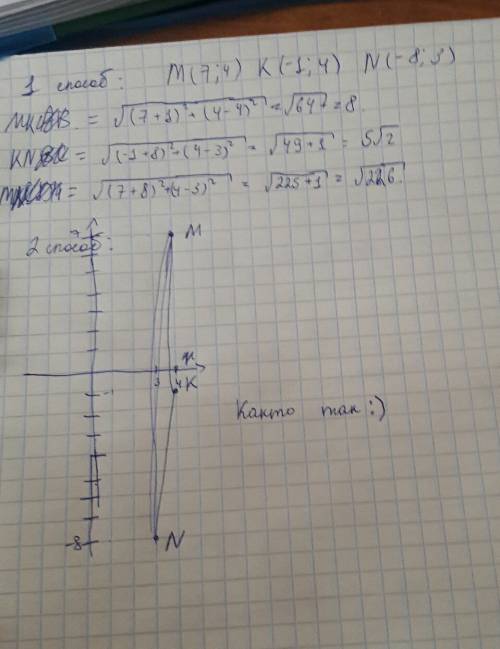 1 способ: M(7;4) K(-1;4) N(-8;3)
MK = √(7+1)²+(4-4)² = √64 = 8.
KN = √(-1+8)²+(4-3)² = √49+1 = 5√2
= √(7+8)²+(4-3)² = √225+1 = √226.
2 способ:
7
M
3
4
K
-1
Както так:)
-8
N